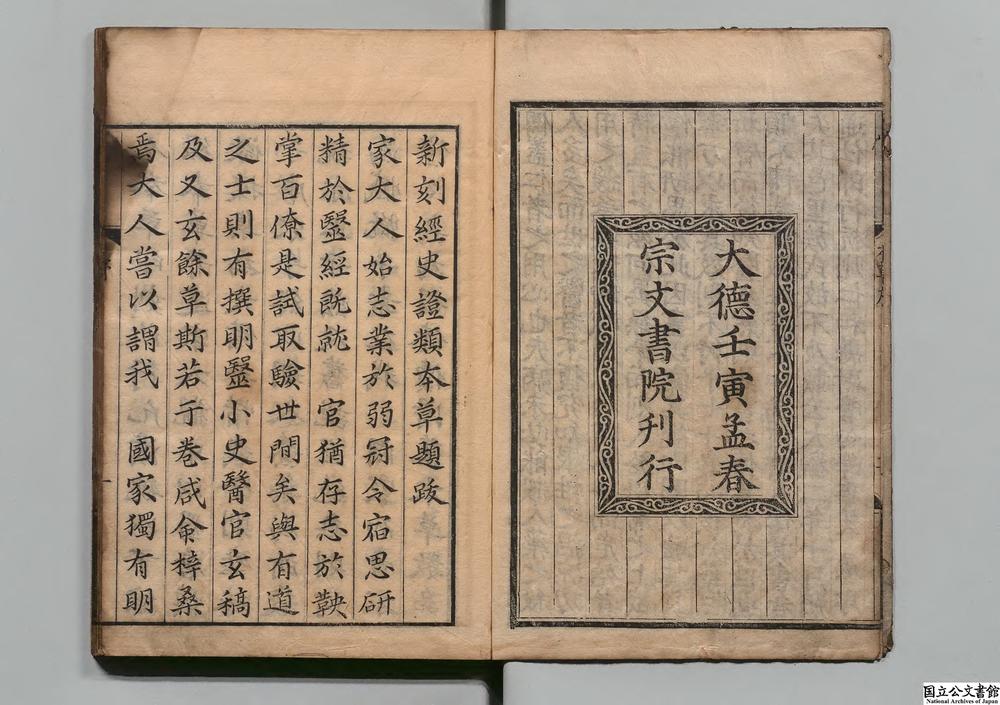 大德壬寅孟春
宗文書院刋行
新刻經史證類本草題跋
家大人始志業於弱冠令宿思研
精於毉經既就 官猶存志於鞅
掌百僚是試取驗世間矣與有道
之士則有撰明毉小史醫官玄稿
及又玄餘草斯若于卷咸命梓桑
焉大人嘗以謂我 國家獨有明
国立公文書館
National Archives of Japan